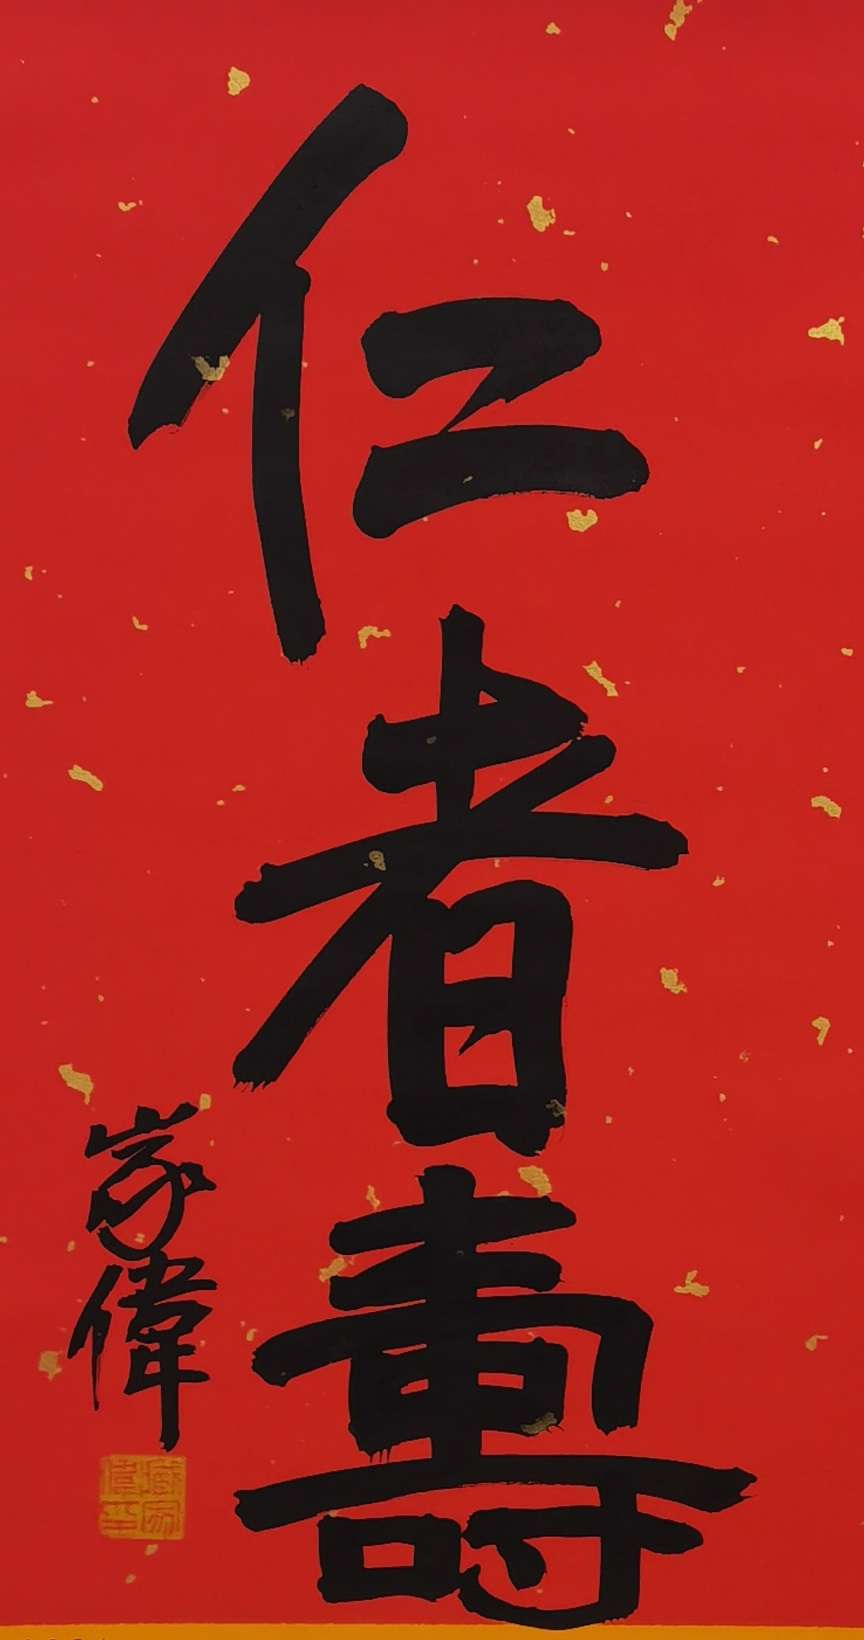 仁者壽
家偉